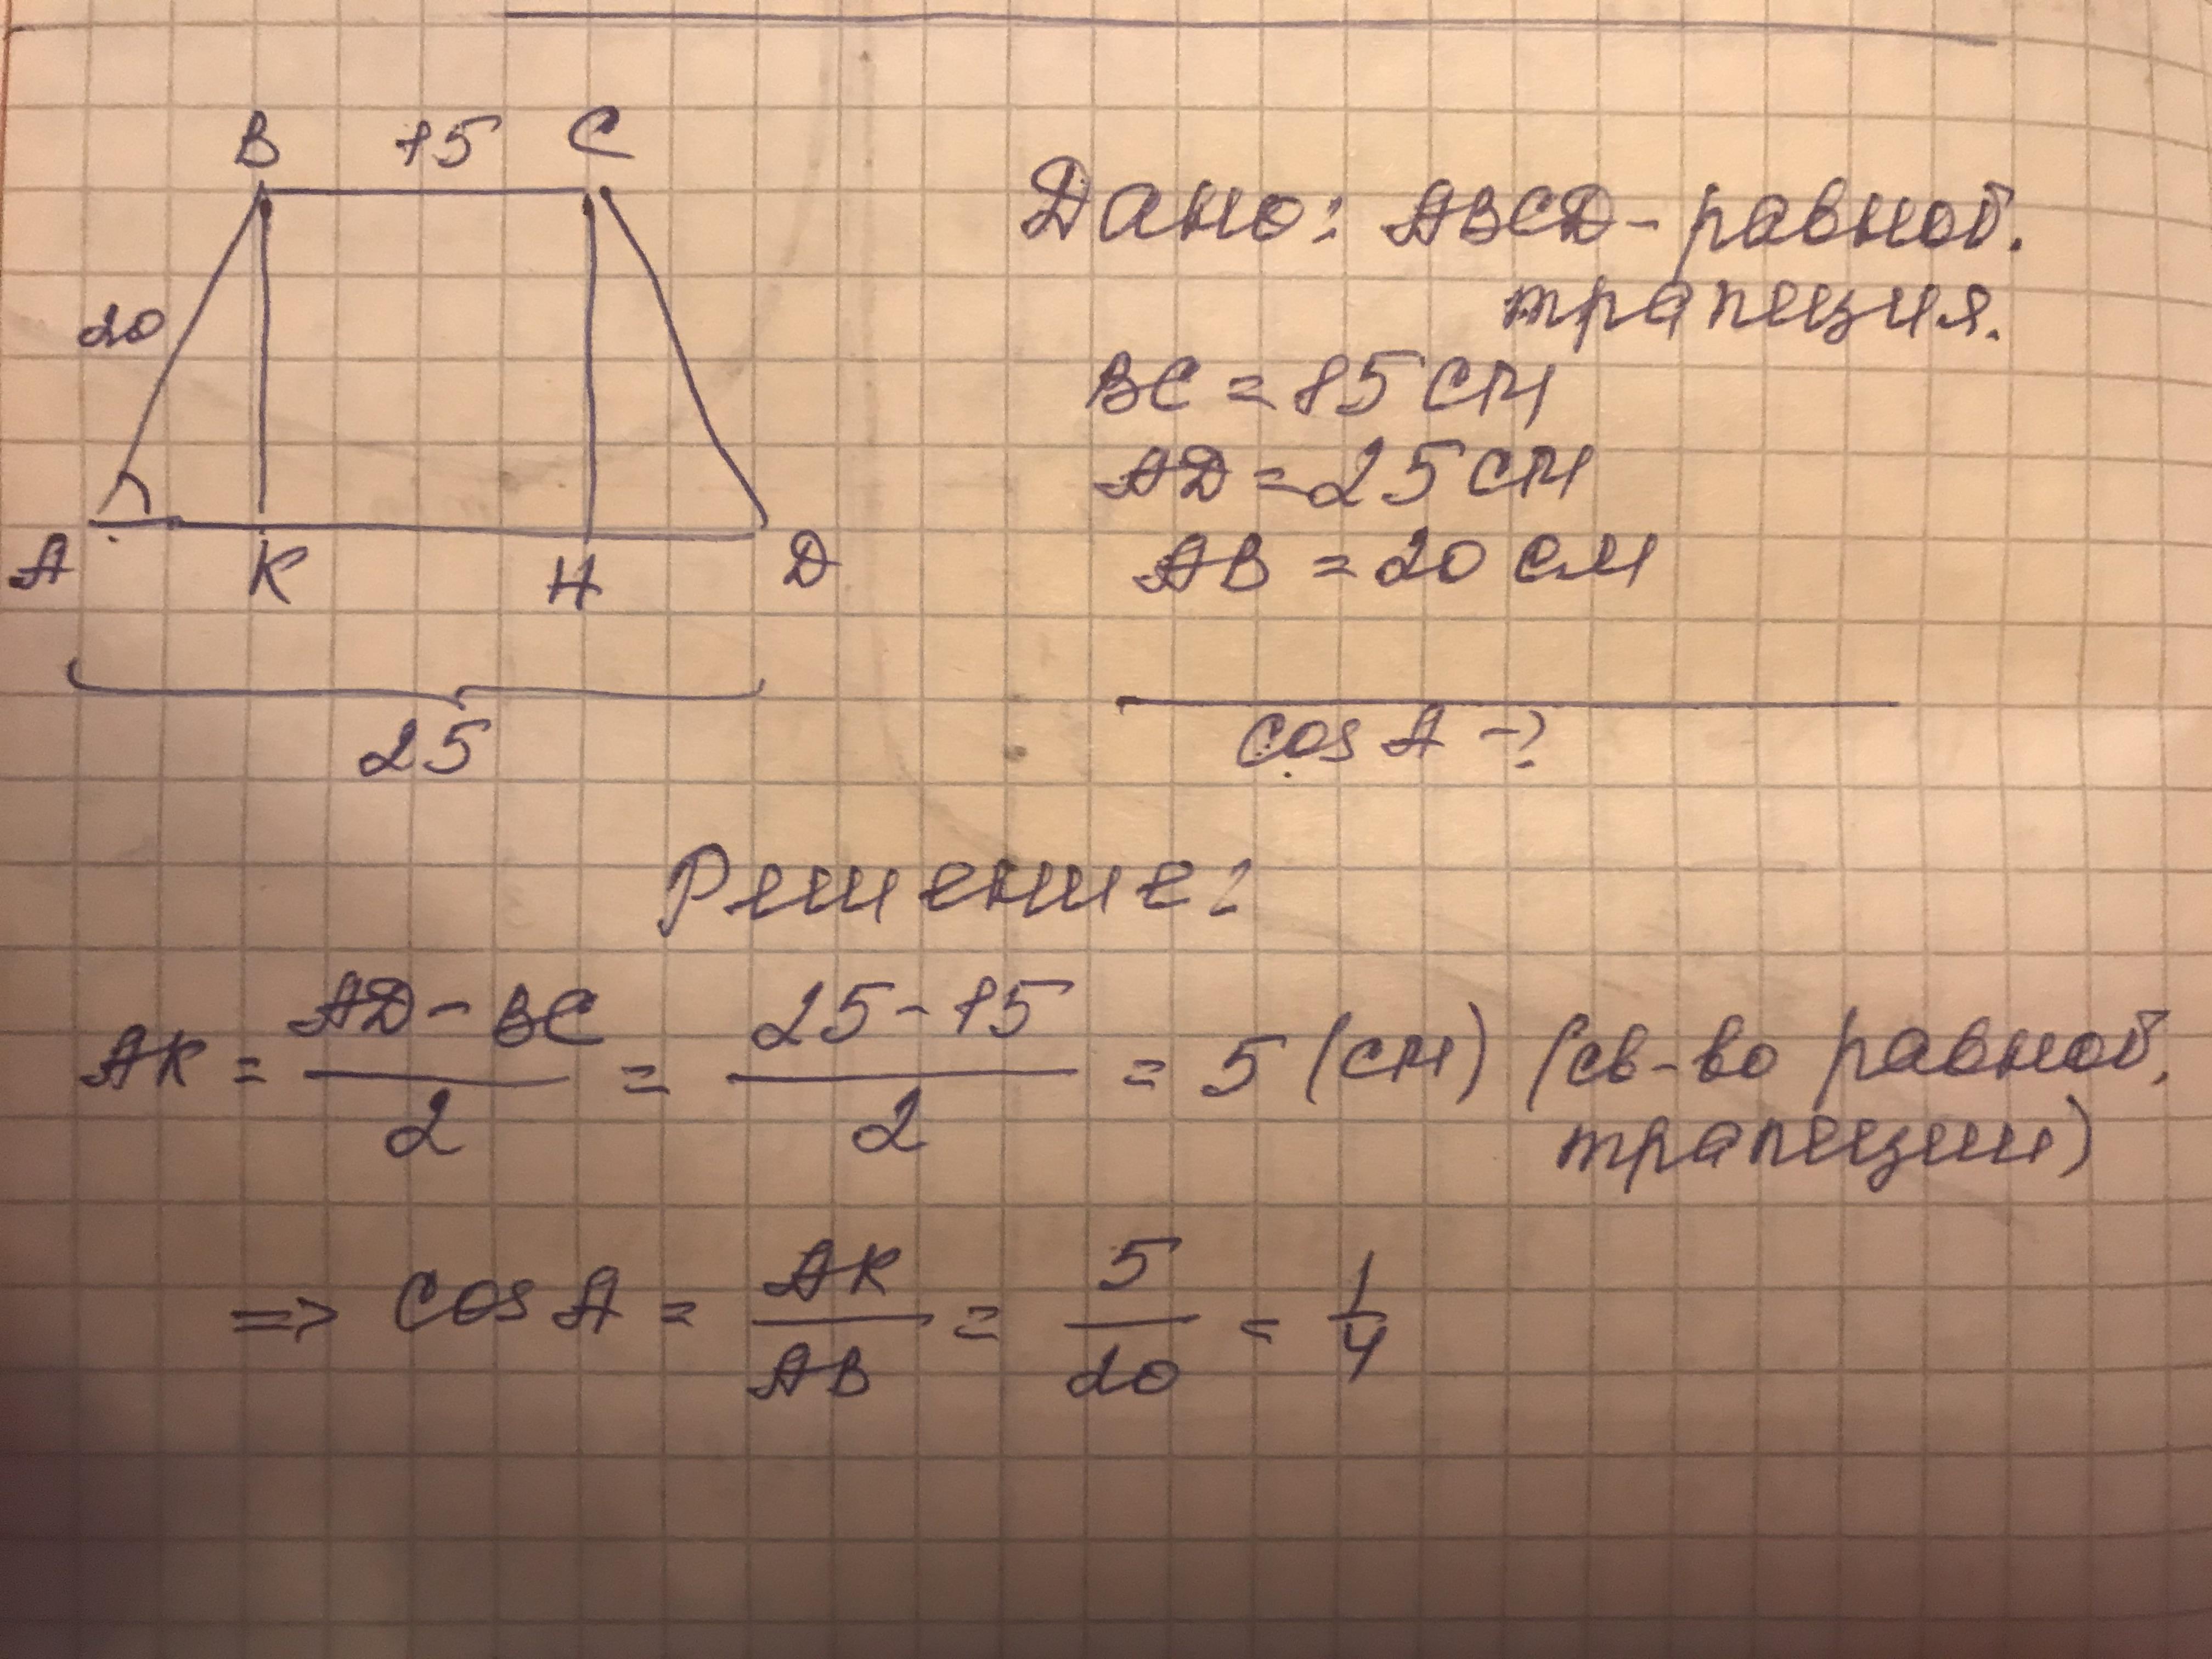 B 15 C
20
A K H D
25
Дано: ABCD - равноб.
трапеция.
BC = 15 см
AD = 25 см
AB = 20 см
cos A - ?
Решение:
AK = (AD - BC)/2 = (25 - 15)/2 = 5 (см) (св-во равноб.
трапеции)
=> cos A = AK/AB = 5/20 = 1/4